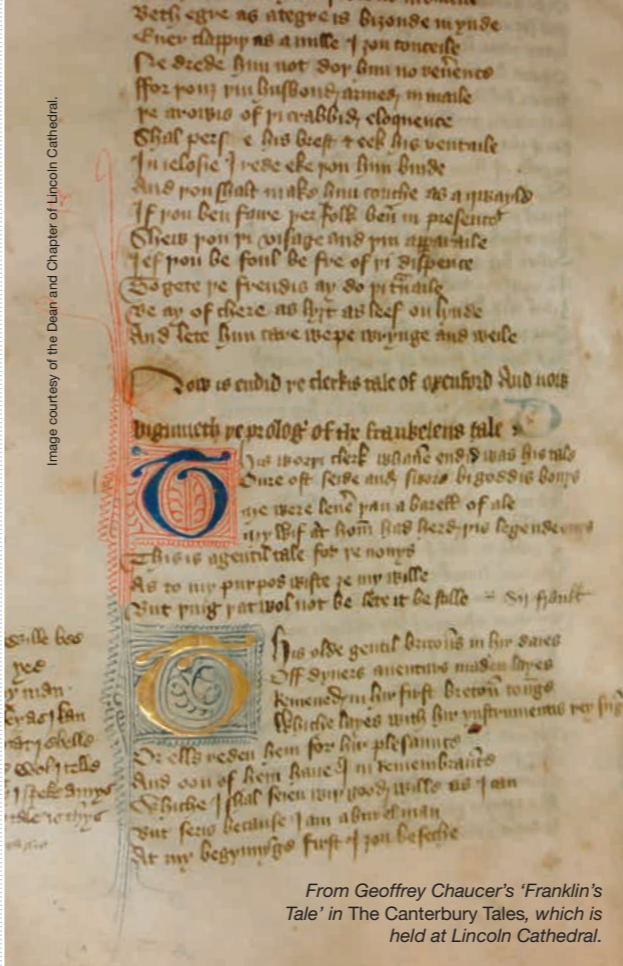 Beth egre as a tegre is bizonde in ynde
Euer clappiþ as a mille I zou conceile
Ne drede hem not doþ hem no reuerence
ffor þouz þin husbond armed in maile
þe arowis of þi crabbid eloquence
Shal perse his brest & eek his ventaile
In ielosie I rede eke þou him binde
And þou shalt make him couche as a quayle
If þou ben faire þer folk ben in presence
Shew þou þi visage and þin apparaile
Jef þou be foul be fre of þi dispence
To gete þe frendis ay do þi trauaile
Be ay of chere as lyzt as leef on lynde
And lete him care wepe wrynge and weile
Now is endid þe clerkis tale of oxenford And now
biginneth þe prolog of the frankelens tale
This worþi clerk whane endid was his tale
Oure oft seide and swore bi goddis bonys
me were leuer þan a barell of ale
my wif at hom had herd þis legende onys
This is a gentil tale for þe nonys
As to my purpos wiste ze my wille
But þing þat wol not be lete it be stille
This olde gentil britouns in hir daies
Off dyuers auenturs maden layes
Remened in hir first breton tonge
Whiche layes with hir ynstrumentis þey
Or ells reden hem for hir plesaunce
And oon of hem haue I in remembrance
Whiche I shal seien wiþ good wille as I can
But sers because I am a burel man
At my begynyng first I zou beseche
wille bee
man
I kan
shelle
telle
Image courtesy of the Dean and Chapter of Lincoln Cathedral.
From Geoffrey Chaucer's 'Franklin's
Tale' in The Canterbury Tales, which is
held at Lincoln Cathedral.